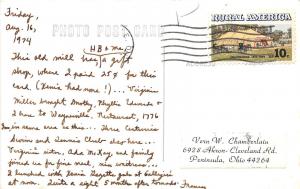 Friday,
Aug. 16,
1974
PHOTO POST CARD
HB & me,
This old mill has a gift
shop, where I paid 25¢ for this
card. (Xenia had none!)... Virginia
Miller brought Mothy, Phyllis Edwards &
I here to Waynesville. Restaurant, 1776
Inn for name over in this... Three Centuries
Irwin and Dennis Club also here...
Virginia's sister, Ada McKay and family
joined us for nice meal, nice waitress...
I lunched with Xenia Gazette gals at
at noon. Quite a sight 5 months after tornado. Frances
RURAL AMERICA
10c
Vern W. Chamberlain
6928 Akron-Cleveland Rd.
Peninsula, Ohio 44264